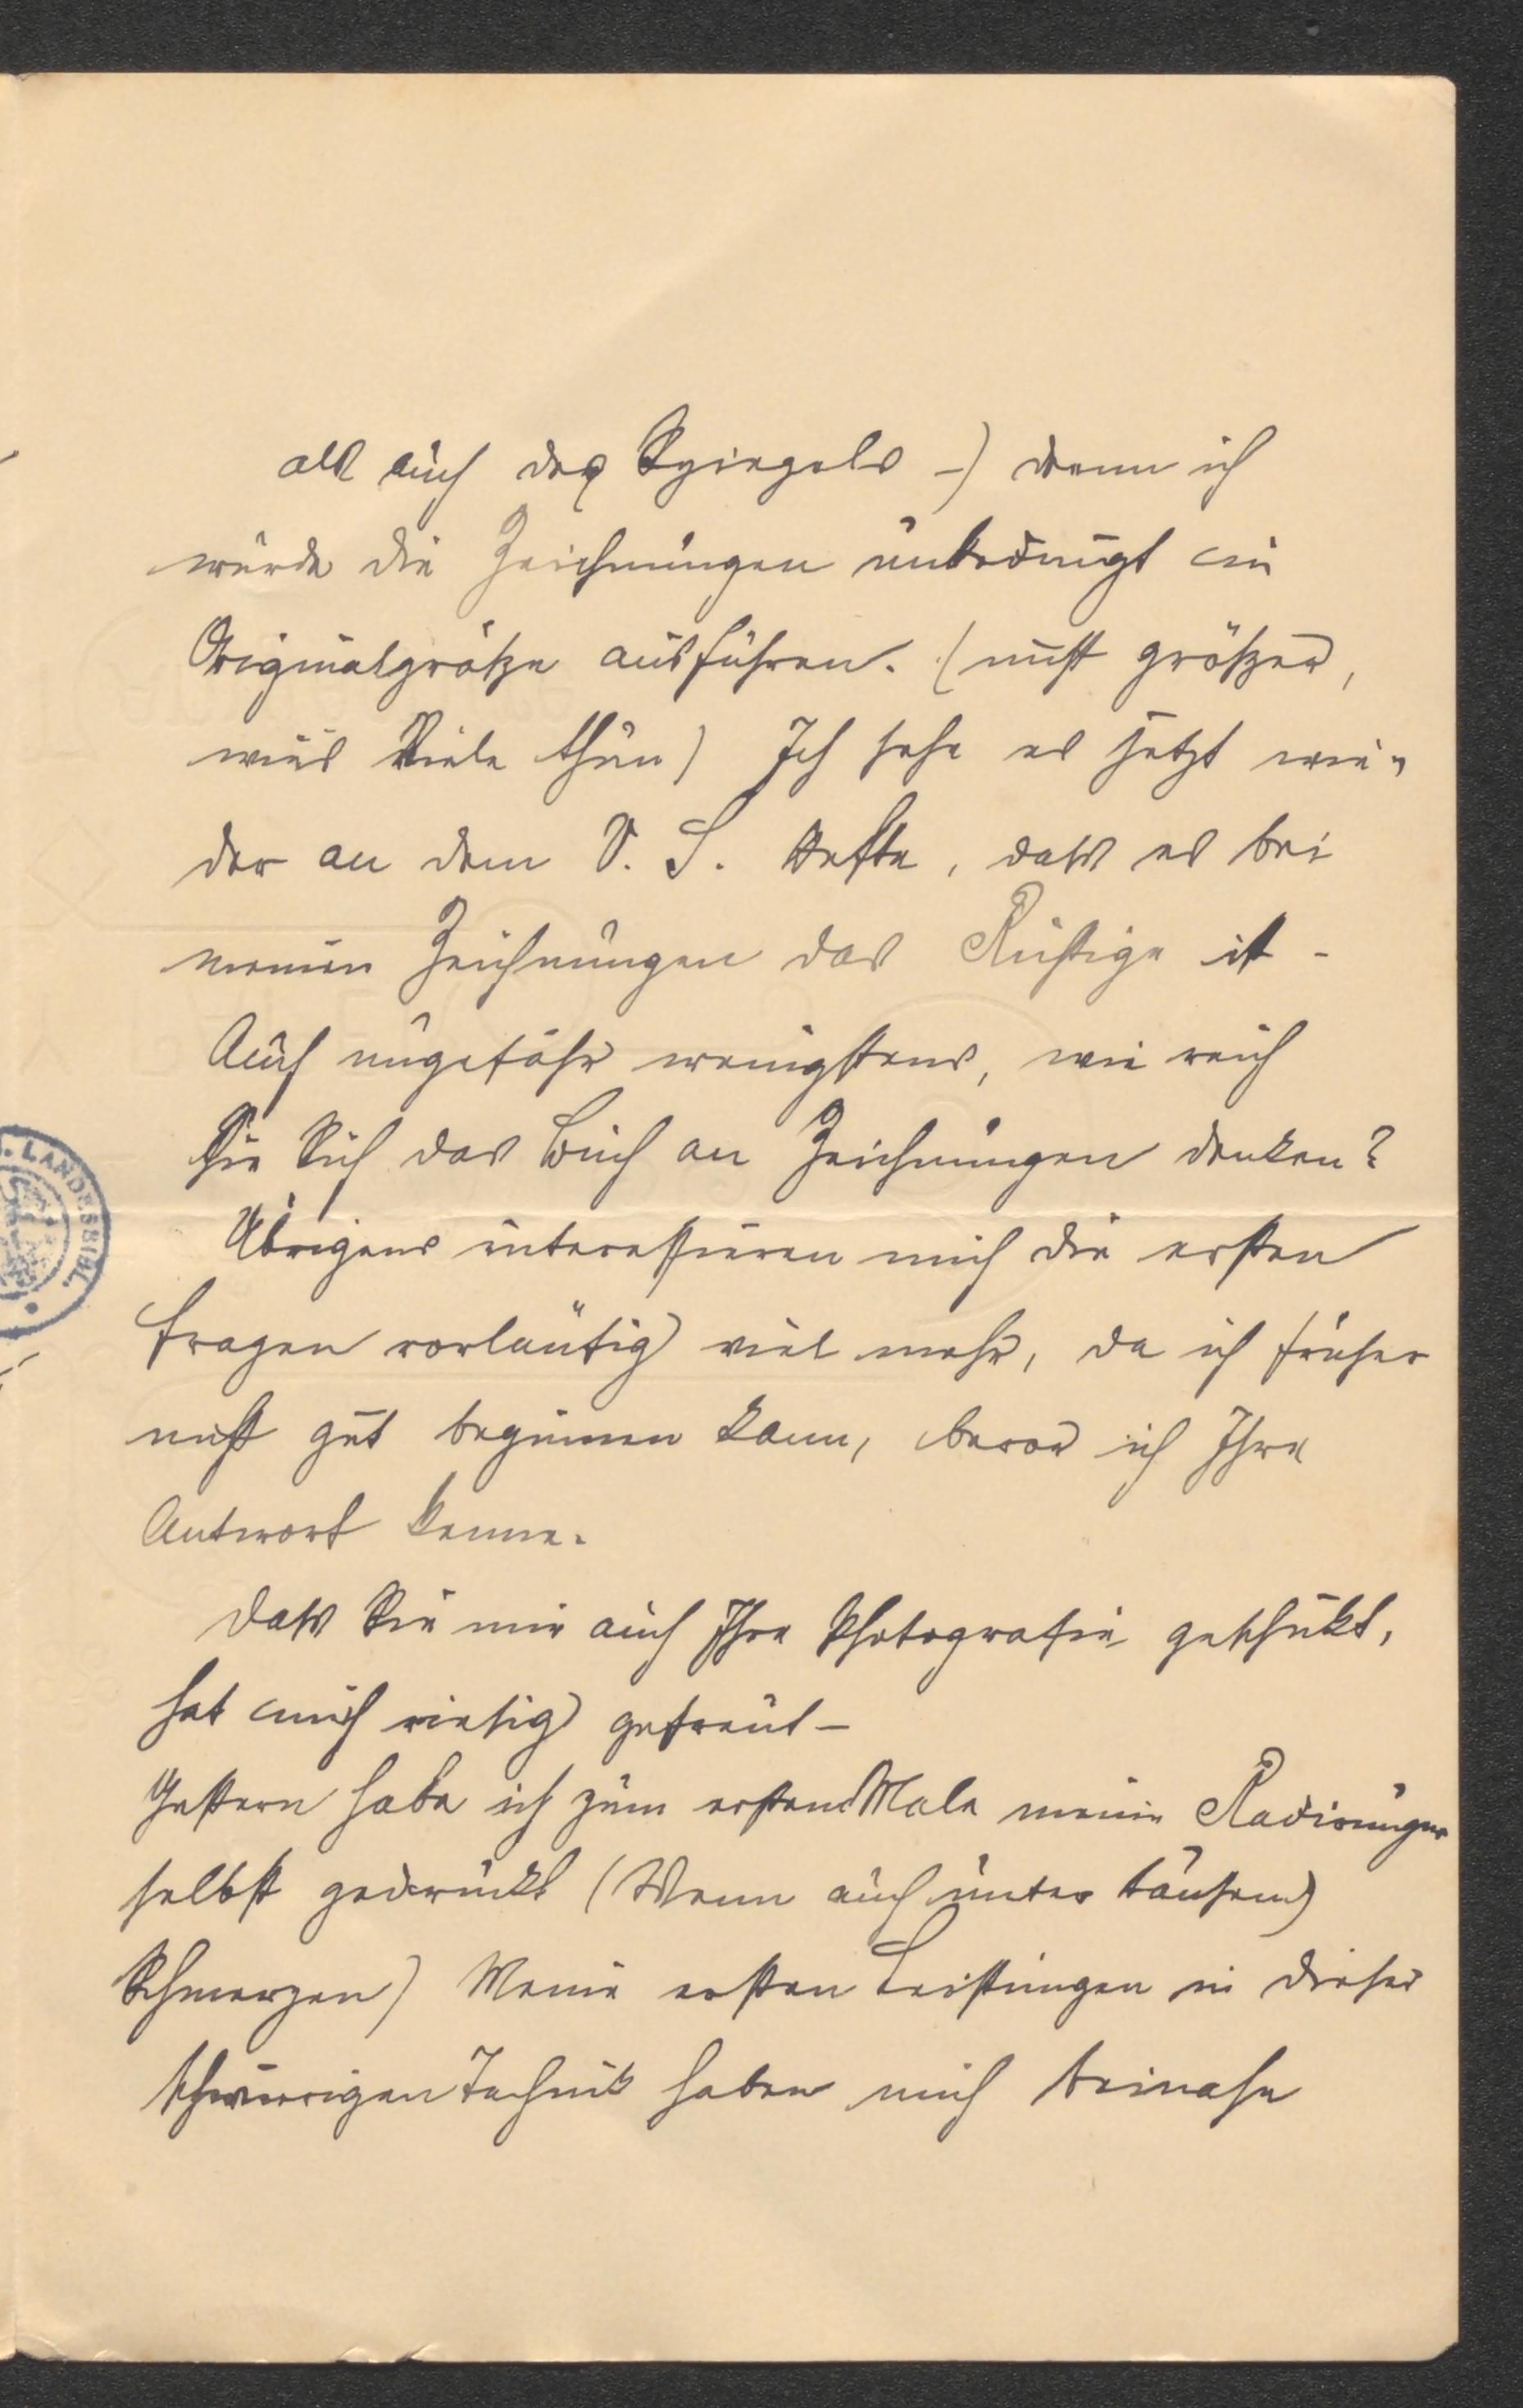 als auch des Spiegels -) denn ich
würde die Zeichnungen unbedingt in
Originalgröße ausführen. (nicht größer,
wie's Viele thun) Ich sehe es jetzt wie=
der an dem V. S. Hefte, dass es bei
meinen Zeichnungen das Richtige ist -
Auch ungefähr wenigstens, wie reich
Sie Sich das Buch an Zeichnungen denken?
Übrigens interessieren mich die ersten
Fragen vorläufig viel mehr, da ich früher
nicht gut beginnen kann, bevor ich Ihre
Antwort kenne.
Dass Sie mir auch Ihre Photografie geschickt,
hat mich riesig gefreut -
Gestern habe ich zum ersten Male meine Radirungen
selbst gedruckt (Wenn auch unter tausend
Schmerzen) Meine ersten Leistungen in dieser
schwierigen Technik haben mich beinahe
LANDESBIBL.